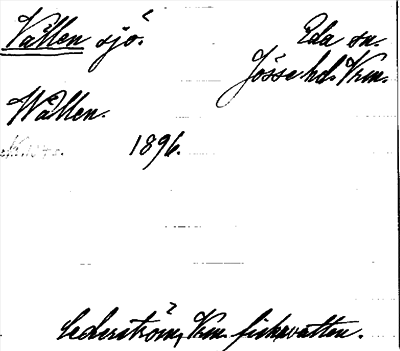 Vållen sjö.
Eda sn.
Jösse hd. Vrm.
Wållen.
1896.
Cederström, Vrm. fiskevatten.